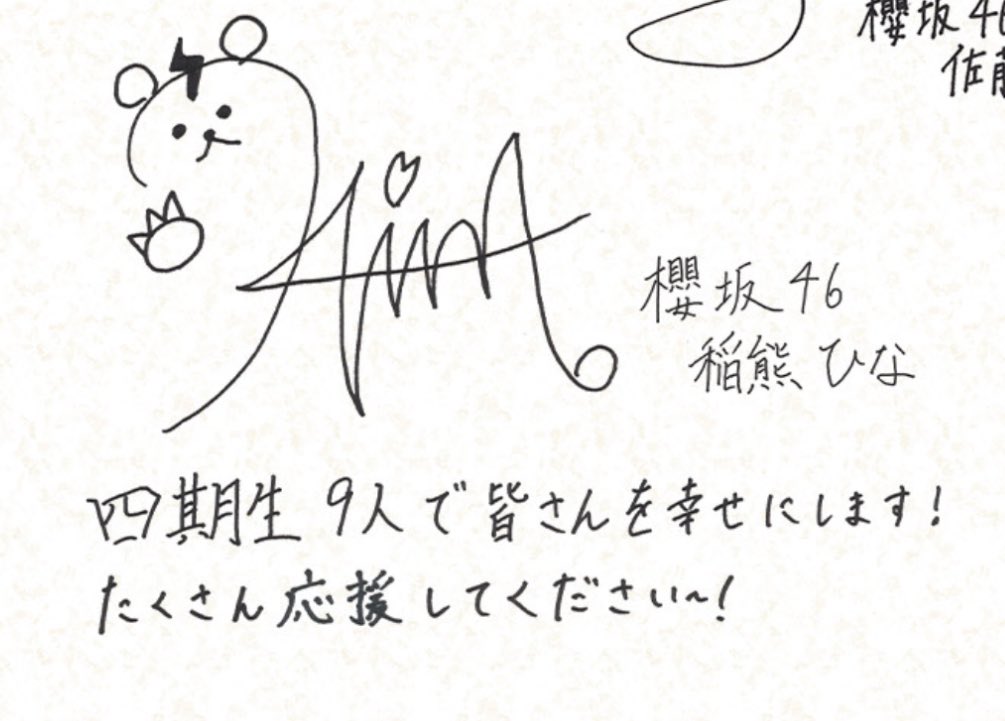 櫻坂46
佐藤
Hina
櫻坂46
稲熊ひな
四期生9人で皆さんを幸せにします!
たくさん応援してください〜!